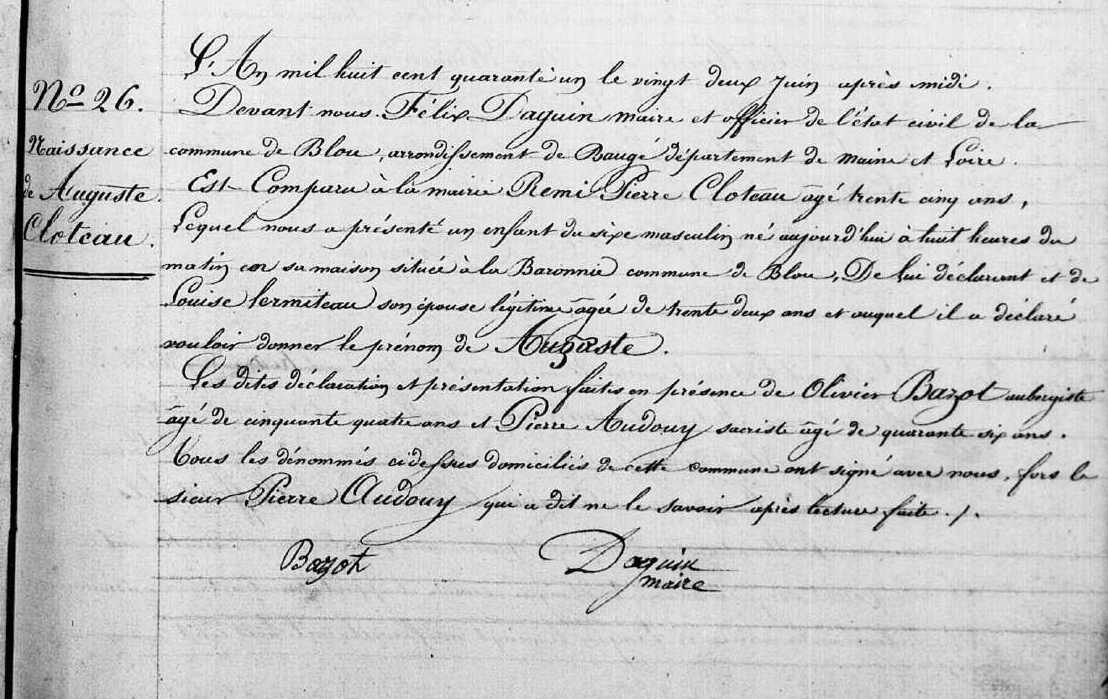 No 26.
Naissance
de Auguste
Cloteau.
L'An mil huit cent quarante un le vingt deux Juin après midi.
Devant nous Félix Daguin maire et officier de l'état civil de la
commune de Blou, arrondissement de Baugé département de maine et Loire.
Est Comparu à la mairie Remi Pierre Cloteau agé trente cinq ans,
Lequel nous a présenté un enfant du sixe masculin né aujourd'hui à huit heures du
matin en sa maison située à la Baronnie commune de Blou, De lui déclarant et de
Louise Lermiteau son épouse légitime agée de trente deux ans et auquel il a déclaré
vouloir donner le prénom de Auguste.
Les dites déclaration et présentation faites en présence de Olivier Bazot aubergiste
âgé de cinquante quatre ans et Pierre Audouy sacriste âgé de quarante six ans.
Tous les dénommés ci dessus domiciliés de cette commune ont signé avec nous, fors le
sieur Pierre Audouy qui a dit ne le savoir après lecture faite ./.
Bazot
Daguin
maire